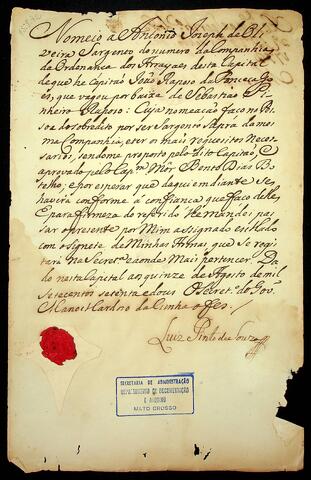 Nomeio a Antonio Joseph de Oli
veira Sargento do numero da Companhia
da Ordenança dos Arrayaes desta Capital
de que he Capitaõ Joaõ Raposo da Fonceca Go
es, que vagou por baixa de Sebastiaõ Pi
nheiro Raposo: Cuja nomeaçaõ faço na Pe
soa do sobredito por ser Sargento Supra da mes
ma Companhia, e ter os mais requezitos neces
sarios, sendome proposto pelo dito Capitaõ, e
aprovado pelo Capm. Mór Bento Dias Bo
telho; e por esperar que daqui em diante se
haverá conforme a confiança que faço delle,
E para firmeza do referido lhe mandei pas
sar o presente por Mim assignado e sellado
com o signete de Minhas Armas, que se regis
tará na Secretra. e aonde Mais pertencer. Da
do nesta Capital aos quinze de Agosto de mil
setecentos setenta e dous. O Secretro. do Govo.
Manoel Cardozo da Cunha o fes.
Luiz Pinto de Souza
SECRETARIA DE ADMINISTRAÇÃO
DEPARTAMENTO DE DOCUMENTAÇÃO
E ARQUIVO
MATO GROSSO